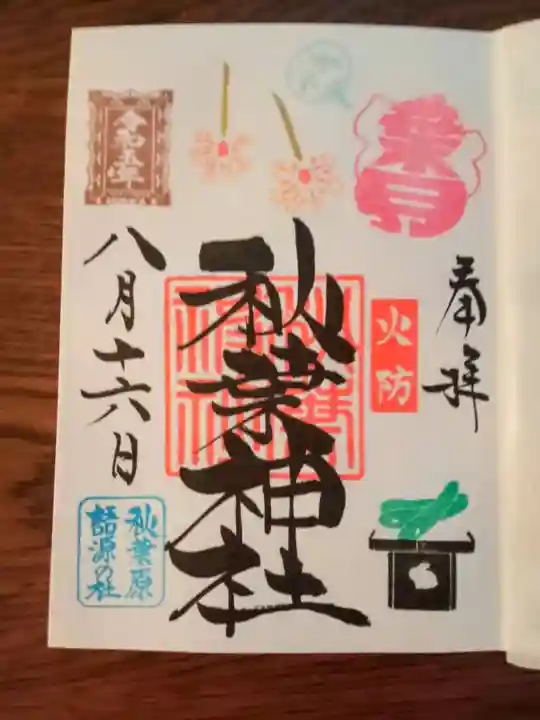 奉拝
火防
秋葉神社
令和五年
八月十六日
秋葉原
語源の社